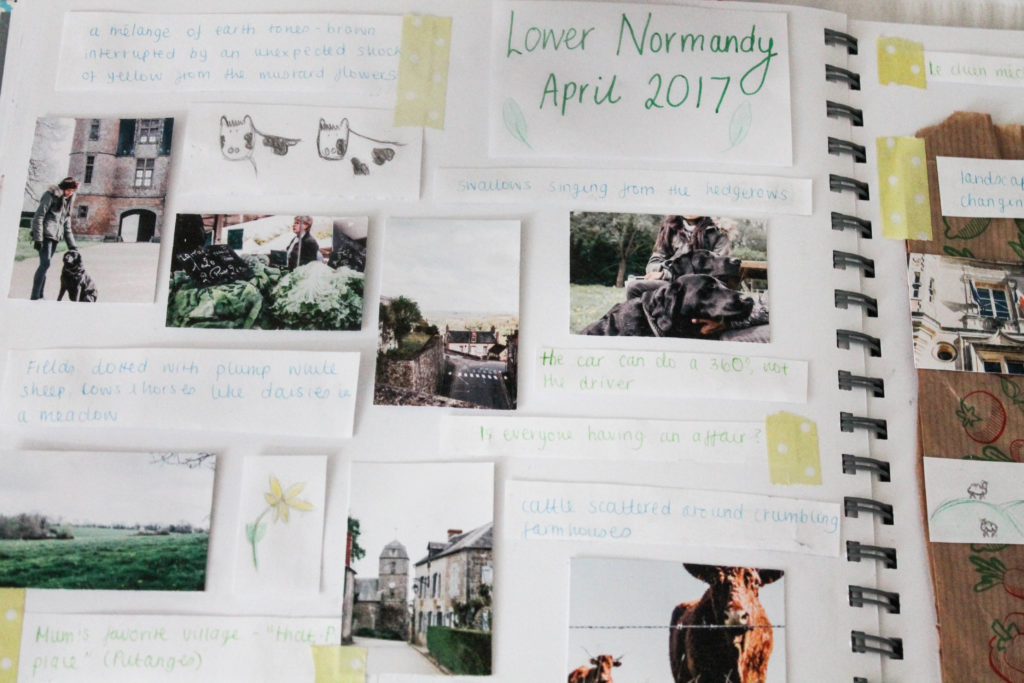 a mélange of earth tones - brown
interrupted by an unexpected shock
of yellow from the mustard flowers
Lower Normandy
April 2017
swallows singing from the hedgerows
Fields dotted with plump white
sheep, cows & horses like daisies in
a meadow
the car can do a 360°, not
the driver
Is everyone having an affair?
cattle scattered around crumbling
farmhouses
Mum's favorite village - "that P.
place" (Putanges)
landscap
changin